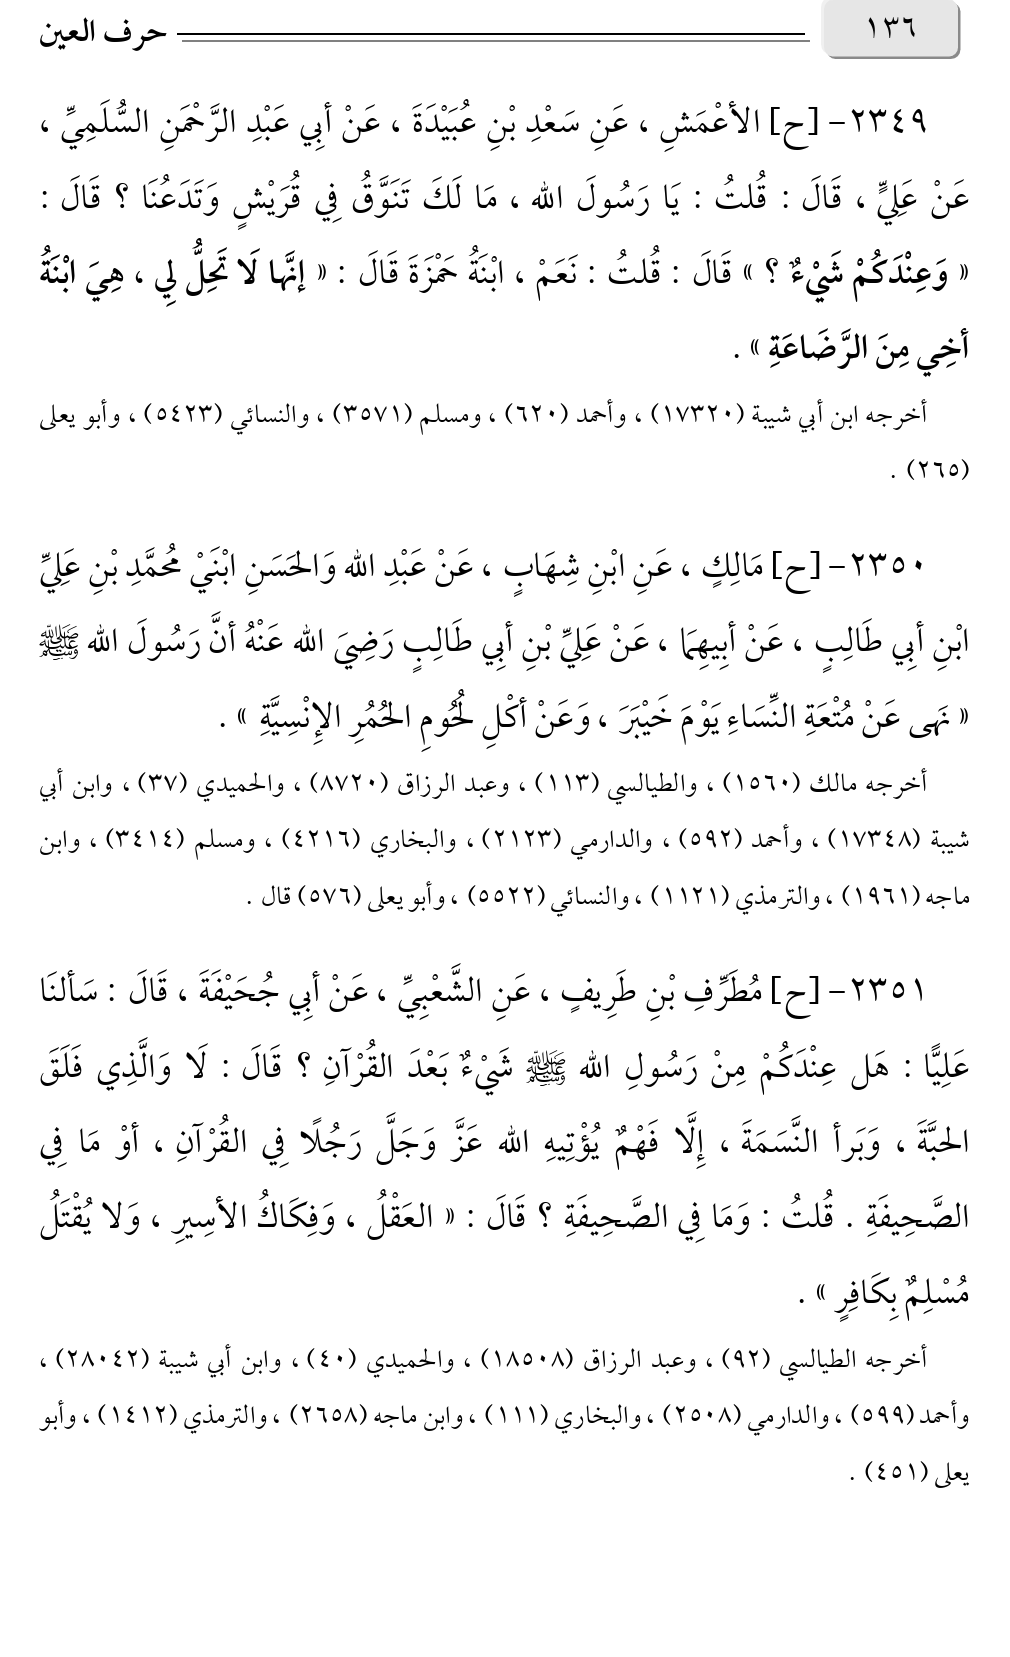 ١٣٦ حرف العين
٢٣٤٩- [ح] الأعْمَشِ ، عَنِ سَعْدِ بْنِ عُبَيْدَةَ ، عَنْ أبِي عَبْدِ الرَّحْمَنِ السُّلَمِيِّ ،
عَنْ عَلِيٍّ ، قَالَ : قُلتُ : يَا رَسُولَ الله ، مَا لَكَ تَنَوَّقُ فِي قُرَيْشٍ وَتَدَعُنَا ؟ قَالَ :
« وَعِنْدَكُمْ شَيْءٌ ؟ » قَالَ : قُلتُ : نَعَمْ ، ابْنَةُ حَمْزَةَ قَالَ : « إنَّها لَا تَحِلُّ لِي ، هِيَ ابْنَةُ
أخِي مِنَ الرَّضَاعَةِ » .
أخرجه ابن أبي شيبة (١٧٣٢٠) ، وأحمد (٦٢٠) ، ومسلم (٣٥٧١) ، والنسائي (٥٤٢٣) ، وأبو يعلى
(٢٦٥) .
٢٣٥٠- [ح] مَالِكٍ ، عَنِ ابْنِ شِهَابٍ ، عَنْ عَبْدِ الله وَالحَسَنِ ابْنَيْ مُحَمَّدِ بْنِ عَلِيِّ
ابْنِ أبِي طَالِبٍ ، عَنْ أبِيهِمَا ، عَنْ عَلِيِّ بْنِ أبِي طَالِبٍ رَضِيَ الله عَنْهُ أنَّ رَسُولَ الله ﷺ
« نَهى عَنْ مُتْعَةِ النِّسَاءِ يَوْمَ خَيْبَرَ ، وَعَنْ أكْلِ لُحُومِ الحُمُرِ الإنْسِيَّةِ » .
أخرجه مالك (١٥٦٠) ، والطيالسي (١١٣) ، وعبد الرزاق (٨٧٢٠) ، والحميدي (٣٧) ، وابن أبي
شيبة (١٧٣٤٨) ، وأحمد (٥٩٢) ، والدارمي (٢١٢٣) ، والبخاري (٤٢١٦) ، ومسلم (٣٤١٤) ، وابن
ماجه (١٩٦١) ، والترمذي (١١٢١) ، والنسائي (٥٥٢٢) ، وأبو يعلى (٥٧٦) قال .
٢٣٥١- [ح] مُطَرِّفِ بْنِ طَرِيفٍ ، عَنِ الشَّعْبِيِّ ، عَنْ أبِي جُحَيْفَةَ ، قَالَ : سَألنَا
عَلِيًّا : هَل عِنْدَكُمْ مِنْ رَسُولِ الله ﷺ شَيْءٌ بَعْدَ القُرْآنِ ؟ قَالَ : لَا وَالَّذِي فَلَقَ
الحَبَّةَ ، وَبَرأ النَّسَمَةَ ، إِلَّا فَهْمٌ يُؤْتِيهِ الله عَزَّ وَجَلَّ رَجُلًا فِي القُرْآنِ ، أوْ مَا فِي
الصَّحِيفَةِ . قُلتُ : وَمَا فِي الصَّحِيفَةِ ؟ قَالَ : « العَقْلُ ، وَفِكَاكُ الأسِيرِ ، وَلا يُقْتَلُ
مُسْلِمٌ بِكَافِرٍ » .
أخرجه الطيالسي (٩٢) ، وعبد الرزاق (١٨٥٠٨) ، والحميدي (٤٠) ، وابن أبي شيبة (٢٨٠٤٢) ،
وأحمد (٥٩٩) ، والدارمي (٢٥٠٨) ، والبخاري (١١١) ، وابن ماجه (٢٦٥٨) ، والترمذي (١٤١٢) ، وأبو
يعلى (٤٥١) .